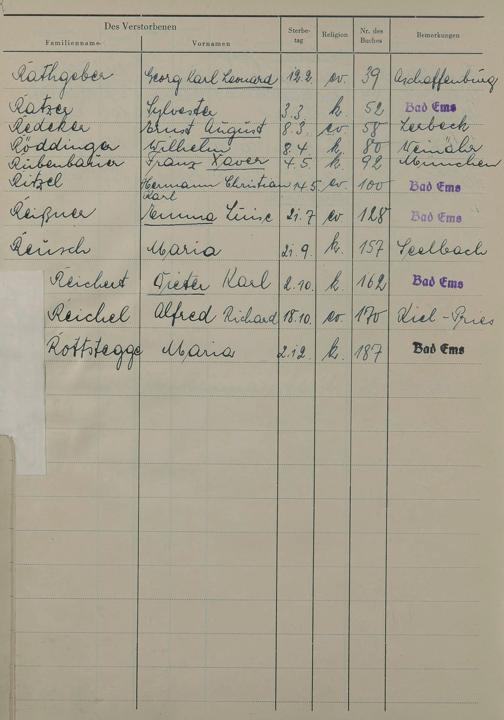 Des Verstorbenen
Familienname Vornamen Sterbe-tag Religion Nr. des Buches Bemerkungen
Rathgeber Georg Karl Leonard 12.2. ev. 39 Aschaffenburg
Ratzer Sylvester 3.3. k. 52 Bad Ems
Redeker Ernst August 8.3. ev. 58 Lerbeck
Röddinger Wilhelm 8.4. k. 80 Weinähr
Rübenbauer Franz Xaver 4.5. k. 92 München
Ritzel Hermann Christian 14.5. ev. 100 Bad Ems
Karl
Reißner Emma Luise 21.7 ev 128 Bad Ems
Reusch Maria 21.9. k. 157 Seelbach
Reichert Dieter Karl 2.10. k. 162 Bad Ems
Reichel Alfred Richard 18.10. ev. 170 Kiel-Pries
Rottstegge Maria 2.12. k. 187 Bad Ems